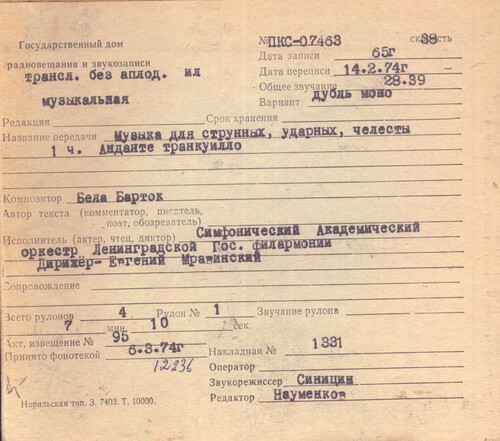 Государственный дом
радиовещания и звукозаписи
трансл. без аплод. ил
музыкальная
№ ПКС-07463 скорость 38
Дата записи 65г
Дата переписи 14.2.74г
Общее звучание 28.39
Вариант дубль моно
Редакция Срок хранения
Название передачи Музыка для струнных, ударных, челесты
1 ч. Анданте транкуилло
Композитор Бела Барток
Автор текста (комментатор, писатель,
поэт, обозреватель)
Исполнитель (актер, чтец, диктор) Симфонический Академический
оркестр Ленинградской Гос. филармонии
Дирижёр- Евгений Мравинский
Сопровождение
Всего рулонов 4 Рулон № 1 Звучание рулона
7 мин. 10 сек.
Акт, извещение № 95
Принято фонотекой 6.3.74г
Накладная № 1331
12236
Оператор
Звукорежиссер Синицин
Редактор Науменков
Норильская тип. З. 7403. Т. 10000.